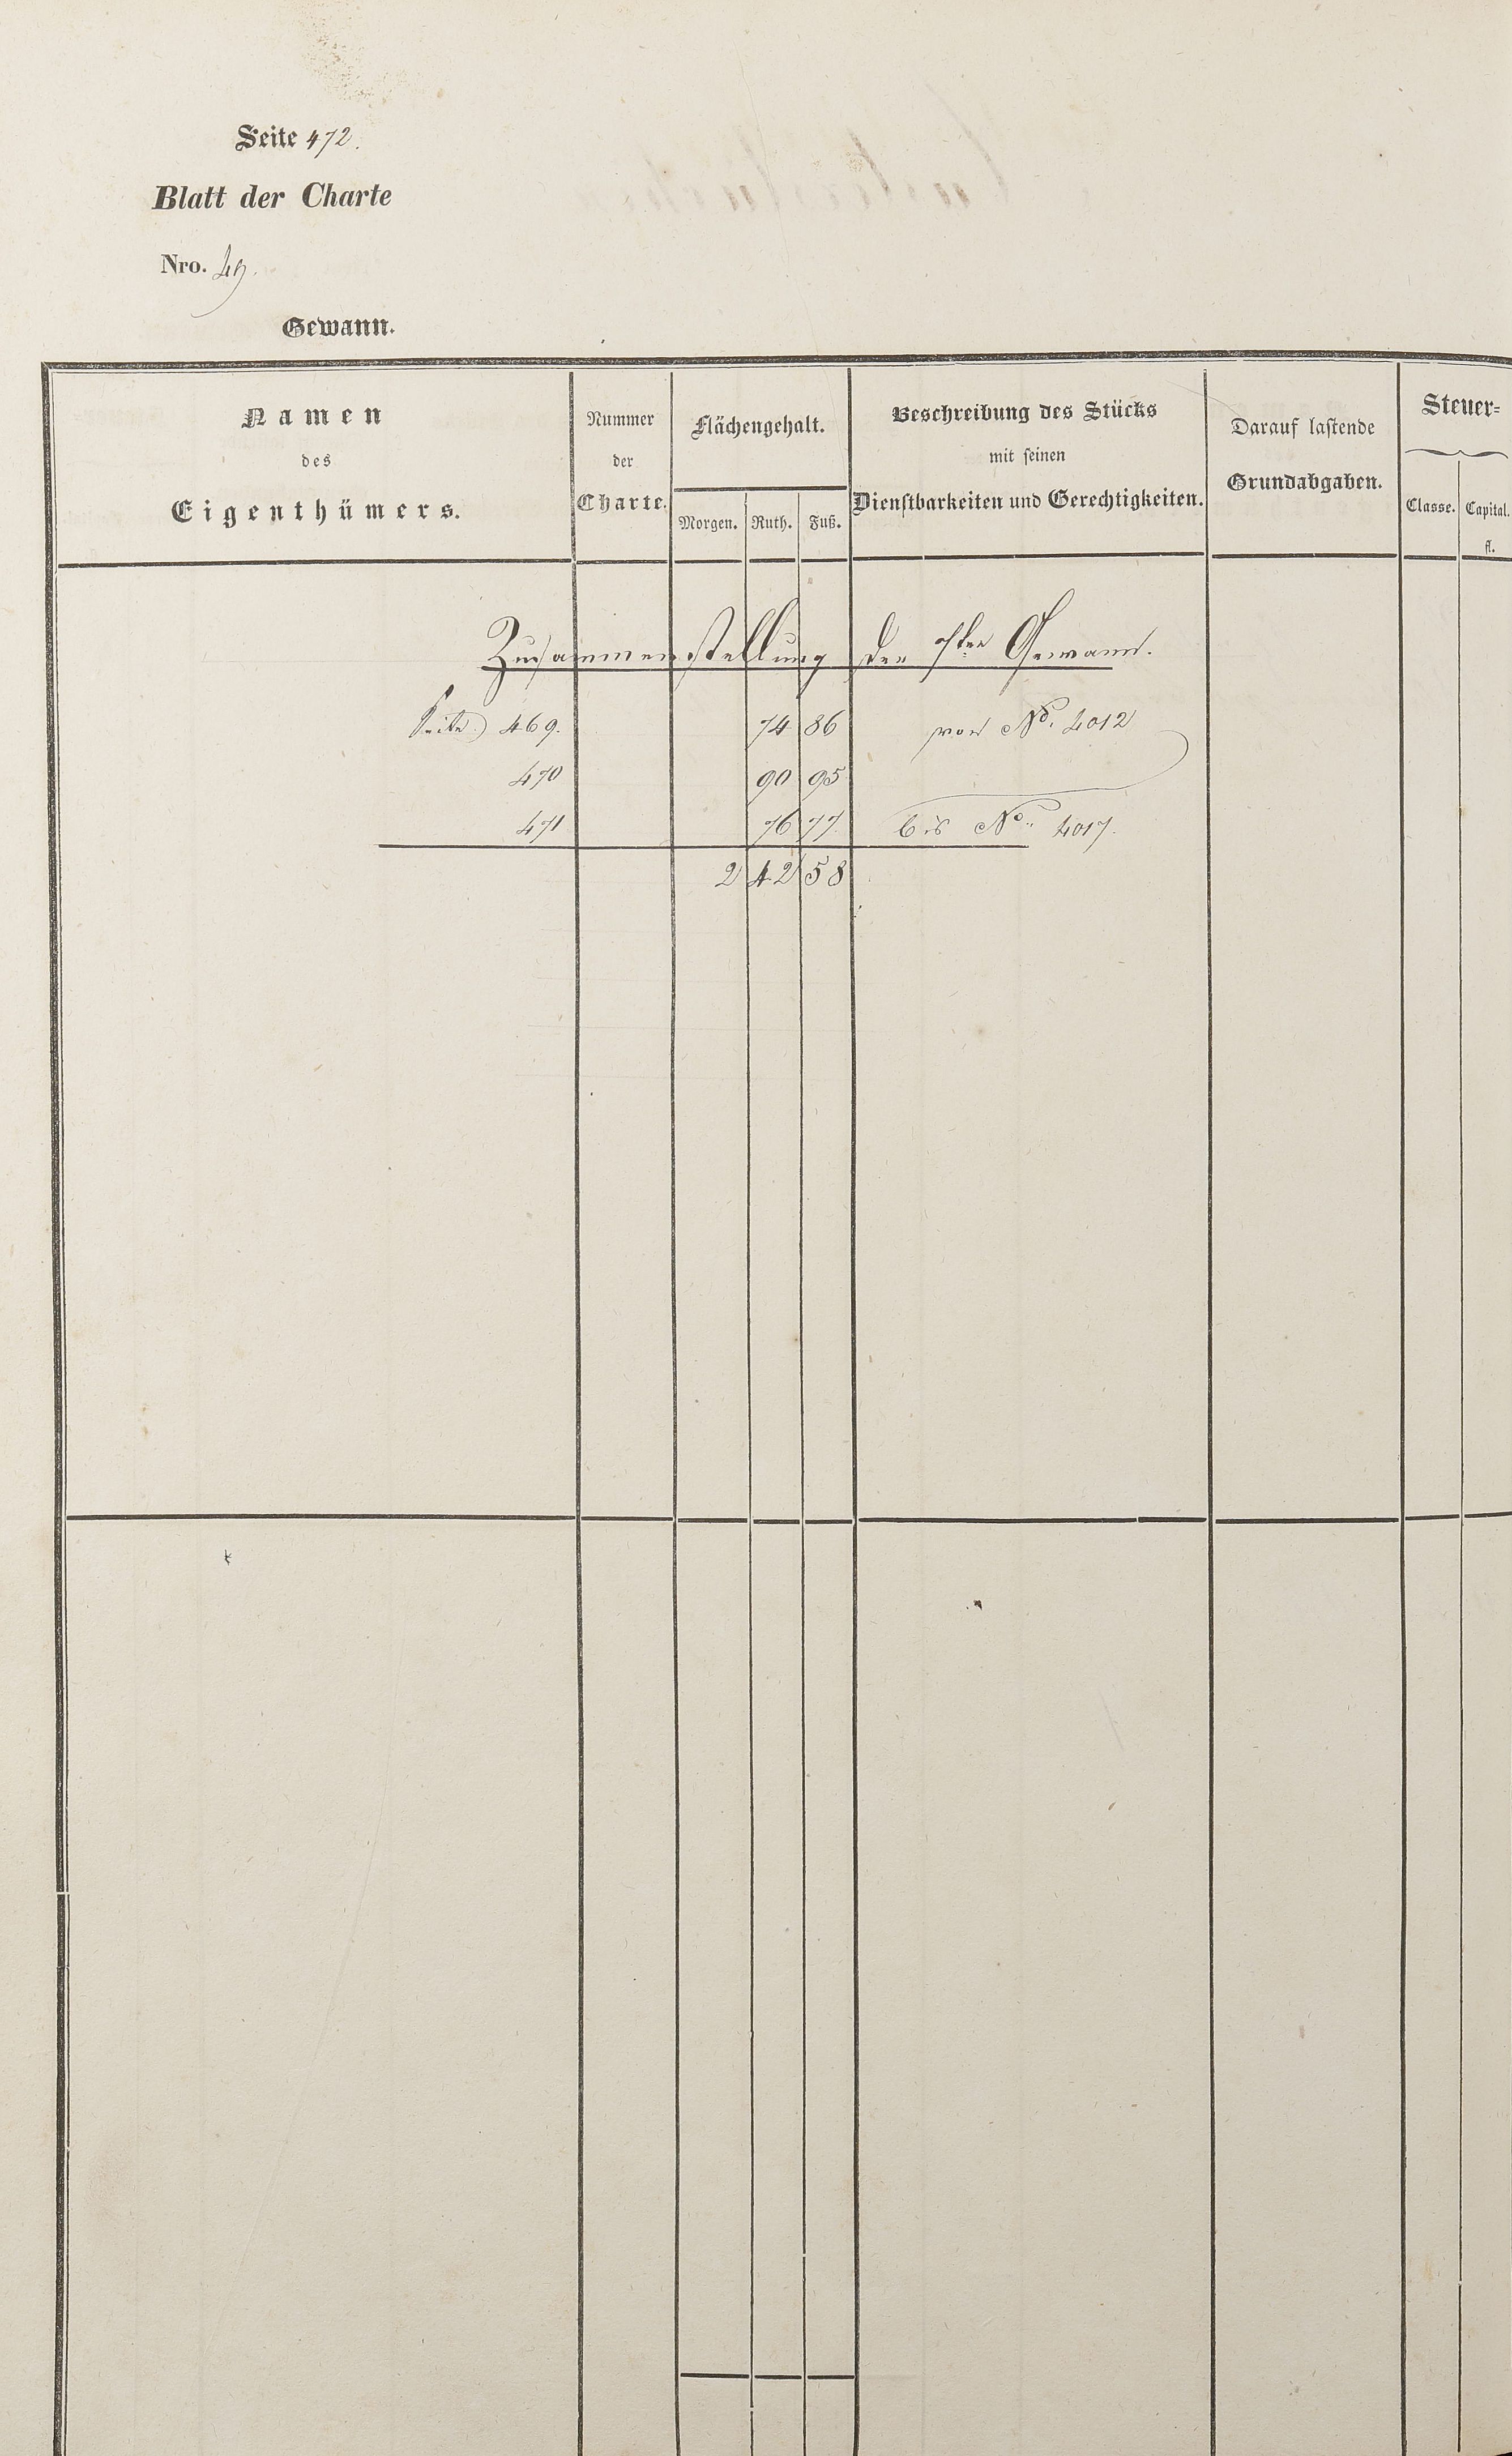 Seite 472.
Blatt der Charte
Nro. 49.
Gewann.
Namen
des
Eigenthümers.
Nummer
der
Charte.
Flächengehalt.
Morgen. Ruth. Fuß.
Beschreibung des Stücks
mit seinen
Dienstbarkeiten und Gerechtigkeiten.
Darauf lastende
Grundabgaben.
Steuer-
Classe. Capital.
fl.
Zusammenstellung der 7ten Gewann.
Seite 469. 74 86 von No. 4012
470 90 95
471 76 77. bis No. 4017.
2 42 58